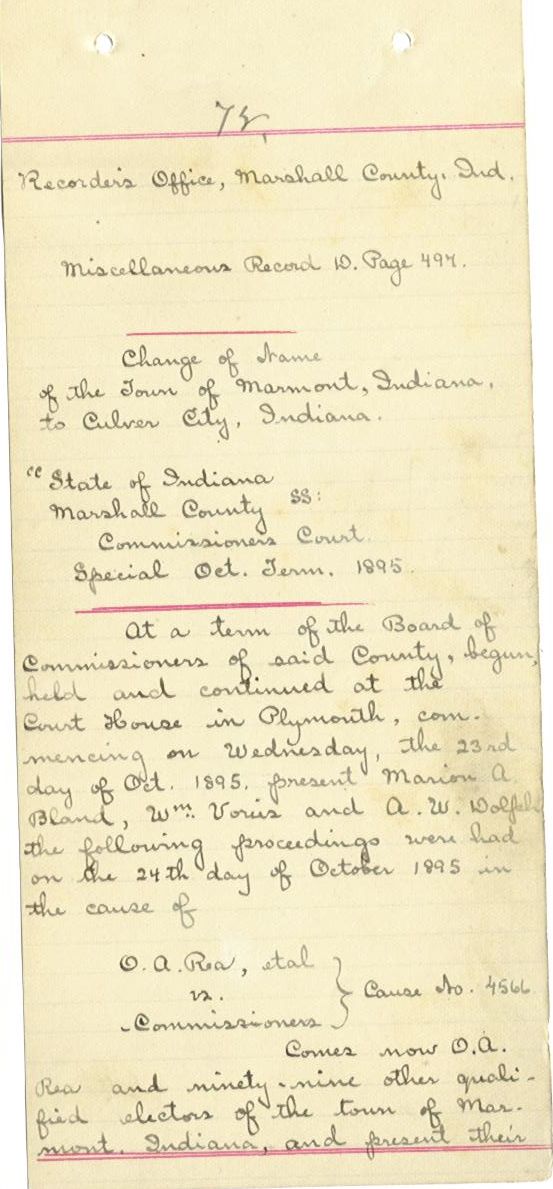 Recorder's Office, Marshall County, Ind.
Miscellaneous Record D. Page 497.
Change of Name
of the Town of Marmont, Indiana,
to Culver City, Indiana.
"State of Indiana
Marshall County SS:
Commissioners Court.
Special Oct. Term. 1895.
At a term of the Board of
Commissioners of said County, begun,
held and continued at the
Court House in Plymouth, com-
mencing on Wednesday, the 23rd
day of Oct. 1895. present Marion A.
Bland, Wm. Voris and A. W. Dolph
the following proceedings were had
on the 24th day of October 1895 in
the cause of
O. A. Rea, etal
vs.
Commissioners } Cause No. 4566
Comes now O.A.
Rea and ninety-nine other quali-
fied electors of the town of Mar-
mont, Indiana, and present their